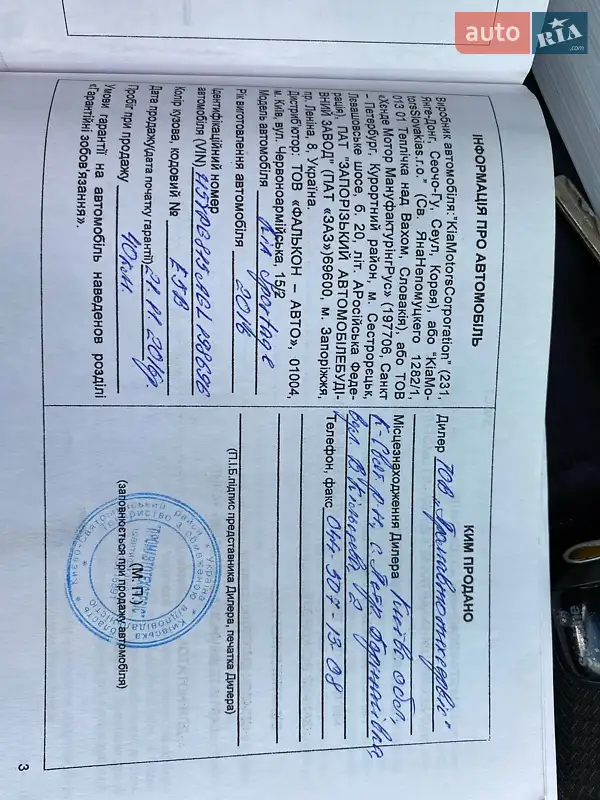 auto RIA .com
ІНФОРМАЦІЯ ПРО АВТОМОБІЛЬ
Виробник автомобіля:"KiaMotorsCorporation" (231,
Янге-Донг, Сеочо-Гу, Сеул, Корея), або "KiaMo-
torsSlovakias.r.o." (Св. ЯнаНепомуцкего 1282/1,
013 01 Теплічка над Вахом, Словакія), або ТОВ
«Хенде Мотор МануфактурінгРус» (197706, Санкт
– Петербург, Курортний район, м. Сестрорєцьк,
Левашовське шосе, б. 20, літ. АРосійська Феде-
рація), ПАТ "ЗАПОРІЗЬКИЙ АВТОМОБІЛЕБУДІ-
ВНИЙ ЗАВОД" (ПАТ «ЗАЗ»)69600, м. Запоріжжя,
пр. Леніна, 8, Україна.
Дистриб'ютор: ТОВ «ФАЛЬКОН – АВТО», 01004,
м. Київ, вул. Червоноармійська, 15/2
Модель автомобіля Kia Sportage
Рік виготовлення автомобіля 2016
Ідентифікаційний номер
автомобіля (VIN)
Колір кузова, кодовий № E5B
Дата продажу(дата початку гарантії) 21.11.2016р
Пробіг при продажу 40 км.
Умови гарантії на автомобіль наведенов розділі
«Гарантійні зобов'язання».
КИМ ПРОДАНО
Дилер ТОВ
Місцезнаходження Дилера Київ. обл,
К-Свят. р-н, с. Петр. Борщагівка
вул. В. Кільцева
Телефон, факс 044-507-13-08
(П.І.Б.підпис представника Дилера, печатка Дилера)
(М. П.)
(заповнюється при продажу автомобіля)
3